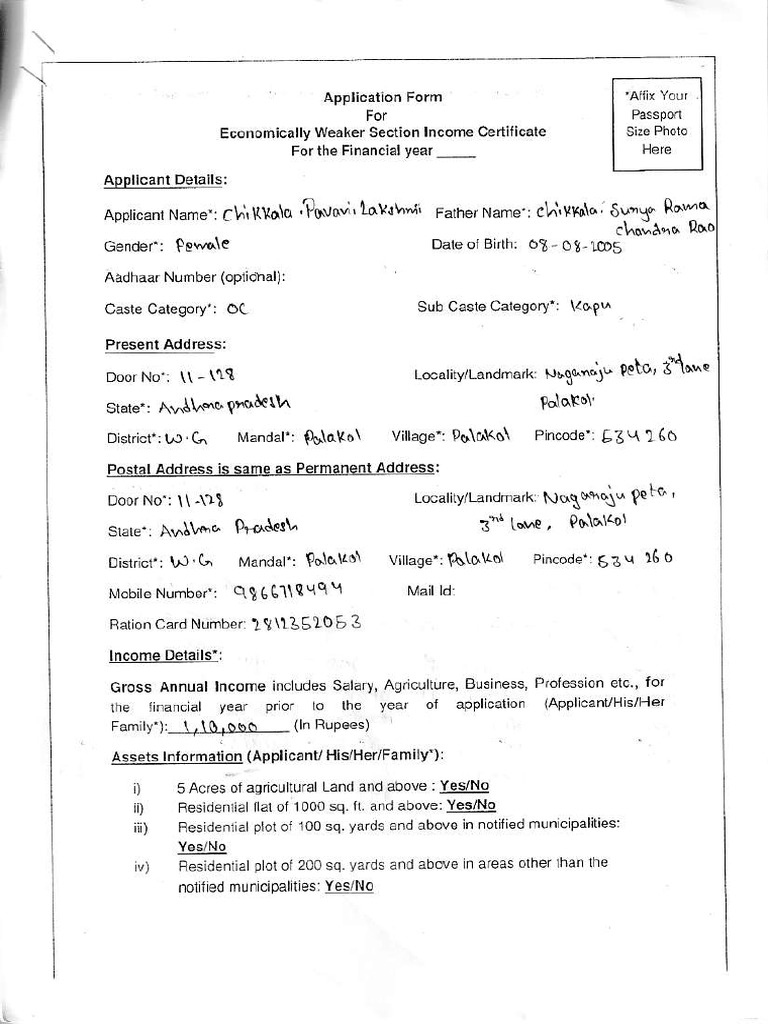 Application Form
For
Economically Weaker Section Income Certificate
For the Financial year _____
*Affix Your
Passport
Size Photo
Here
Applicant Details:
Applicant Name*: Chikkala . Pavani. Lakshmi Father Name*: Chikkala. Surya Rama
Chandra Rao
Gender*: Female Date of Birth: 08-08-2005
Aadhaar Number (optional):
Caste Category*: OC Sub Caste Category*: Kapu
Present Address:
Door No*: 11-128 Locality/Landmark: Nagaraju peta, 3rd lane
Palakol.
State*: Andhra pradesh
District*: W.G Mandal*: Palakol Village*: Palakol Pincode*: 534 260
Postal Address is same as Permanent Address:
Door No*: 11-128 Locality/Landmark: Nagaraju peta,
State*: Andhra Pradesh 3rd lane, Palakol
District*: W.G Mandal*: Palakol Village*: Palakol Pincode*: 534 260
Mobile Number*: 9866718494 Mail Id:
Ration Card Number: 2812352053
Income Details*:
Gross Annual Income includes Salary, Agriculture, Business, Profession etc., for
the financial year prior to the year of application (Applicant/His/Her
Family*): 1,10,000 (In Rupees)
Assets Information (Applicant/ His/Her/Family*):
i) 5 Acres of agricultural Land and above : Yes/No
ii) Residential flat of 1000 sq. ft. and above: Yes/No
iii) Residential plot of 100 sq. yards and above in notified municipalities:
Yes/No
iv) Residential plot of 200 sq. yards and above in areas other than the
notified municipalities: Yes/No